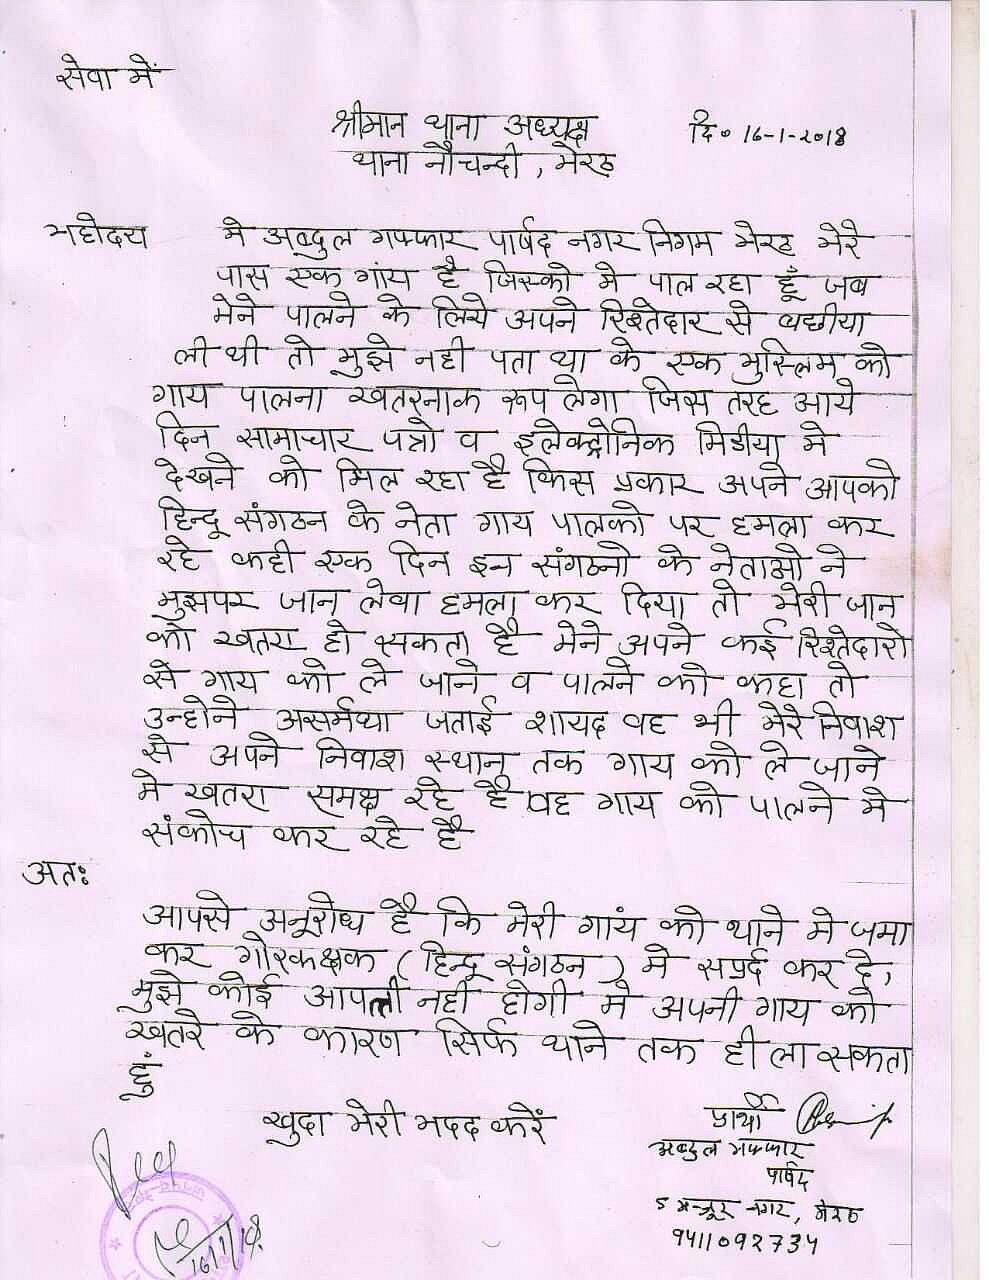 सेवा में
श्रीमान थाना अध्यक्ष
दि० 16-1-2018
थाना नौचन्दी, मेरठ
महोदय मे अब्दुल गफ्फार पार्षद नगर निगम मेरठ मेरे
पास एक गांय है जिस्को मे पाल रहा हूँ जब
मेने पालने के लिये अपने रिश्तेदार से बछीया
ली थी तो मुझे नही पता था के एक मुस्लिम को
गाय पालना खतरनाक रूप लेगा जिस तरह आये
दिन सामाचार पत्रो व इलेक्ट्रोनिक मिडीया मे
देखने को मिल रहा है किस प्रकार अपने आपको
हिन्दू संगठन के नेता गाय पालको पर हमला कर
रहे कही एक दिन इन संगठनो के नेताओ ने
मुझपर जान लेवा हमला कर दिया तो मेरी जान
को खतरा हो सकता है मेने अपने कई रिश्तेदारो
से गाय को ले जाने व पालने को कहा तो
उन्होने असर्मथा जताई शायद वह भी मेरे निवाश
से अपने निवाश स्थान तक गाय को ले जाने
मे खतरा समक्ष रहे है वह गाय को पालने मे
संकोच कर रहे है
अतः
आपसे अनूरोध है कि मेरी गांय को थाने मे जमा
कर गौरकक्षक (हिन्दू संगठन) मे सर्पुद कर दे,
मुझे कोई आपत्ती नही होगी मे अपनी गाय को
खतरे के कारण सिर्फ थाने तक ही ला सकता
हुं
खुदा मेरी मदद करें
प्रार्थी
अब्दुल गफ्फार
पार्षद
नगर, मेरठ
9411092734
16/1/18